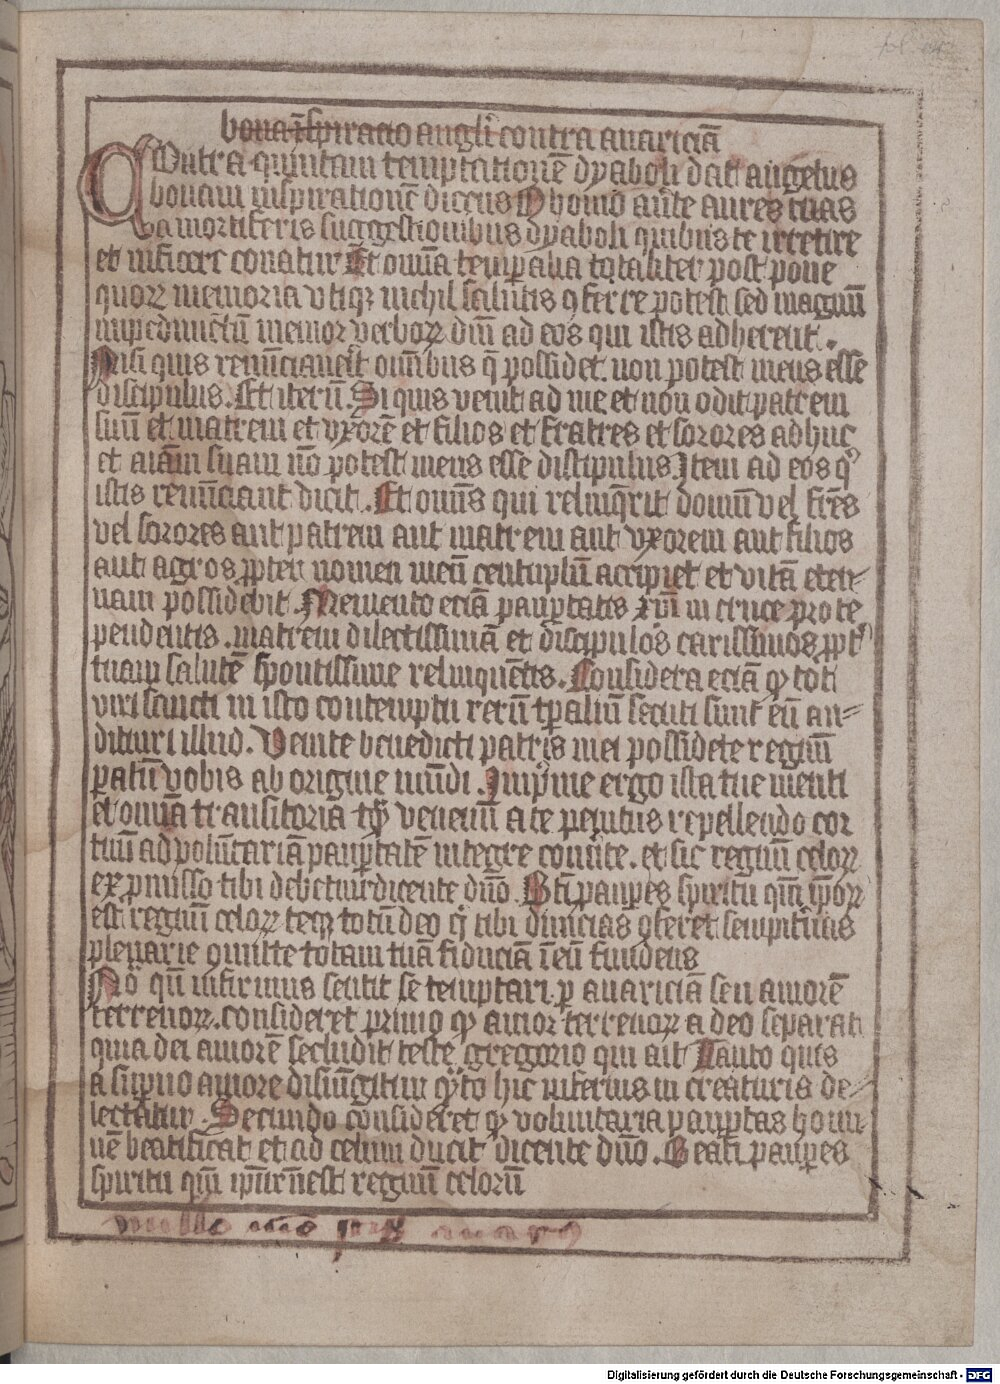 bona īspiracio angli contra auariciā
COntra quintam temptationē dyaboli dat angelus
bonam inspirationē dicens O homo au̅te aures tuas
a mortiferis suggestionibus dyaboli quibus te irretire
et inficere conatur Et om̄ia temp̄alia totaliter post pone
quoꝝ memoria vtiqꝫ nichil salutis ꝯferre potest sed magnū
impedimētū memor verboꝝ dn̄i ad eos qui istis adherent.
Nisi quis renūciauerit om̄ibus q̄ possidet. non potest meus esse
discipulus. Et iterū. Si quis venit ad me et non odit patrem
suū et matrem et vxorē et filios et fratres et sorores adhuc
et aīam suam nō potest meus esse discipulus. Item ad eos qͥ
istis renūciant dicit. Et om̄is qui relinq̄rit domū vel fr̄es
vel sorores aut patrem aut matrem aut vxorem aut filios
aut agros ꝓpter nomen meū centuplū accipiet et vitā eter-
nam possidebit. Memento eciā paup̄tatis xp̄i in cruce pro te
pendentis. matrem dilectissimā et discipulos carissimos ꝓpt̓
tuam salutē spontissime relinquētis. Considera eciā ꝙ tot
viri sancti in isto contemptu rerū tp̄aliū secuti sunt eū au-
dituri illud. Venite benedicti patris mei possidete regnū
paratū vobis ab origine mūdi. Imp̓me ergo ista tue menti
et om̄ia transitoria tāqͣꝫ venenū a te penitus repellendo cor
tuū ad volūtariā paup̄tatē integre conu̓te. et sic regnū celoꝝ
ex p̄misso tibi debetur dicente dn̄o. Bt̄i paup̄es spiritu qm̄ ip̄oꝝ
est regnū celoꝝ teqꝫ totū deo qͥ tibi diuicias ꝯferet sempit̓nas
plenarie ꝯmitte totam tuā fiduciā ī eū fundens
Nō qn̄ infirmus sentit se temptari ꝑ auariciā seu amorē
terrenoꝝ. consideret primo ꝙ amor terrenoꝝ a deo separat
quia dei amorē secludit teste gregorio qui ait Tanto quis
a sup̓no amore disiūgitur qͣnto hic inferius in creaturis de-
lectatur. Secundo consideret ꝙ voluntaria paup̄tas homi-
nē beatificat et ad celum ducit dicente dn̄o. Beati paup̄es
spiritu qm̄ ip̄or̄ est regnū celorū